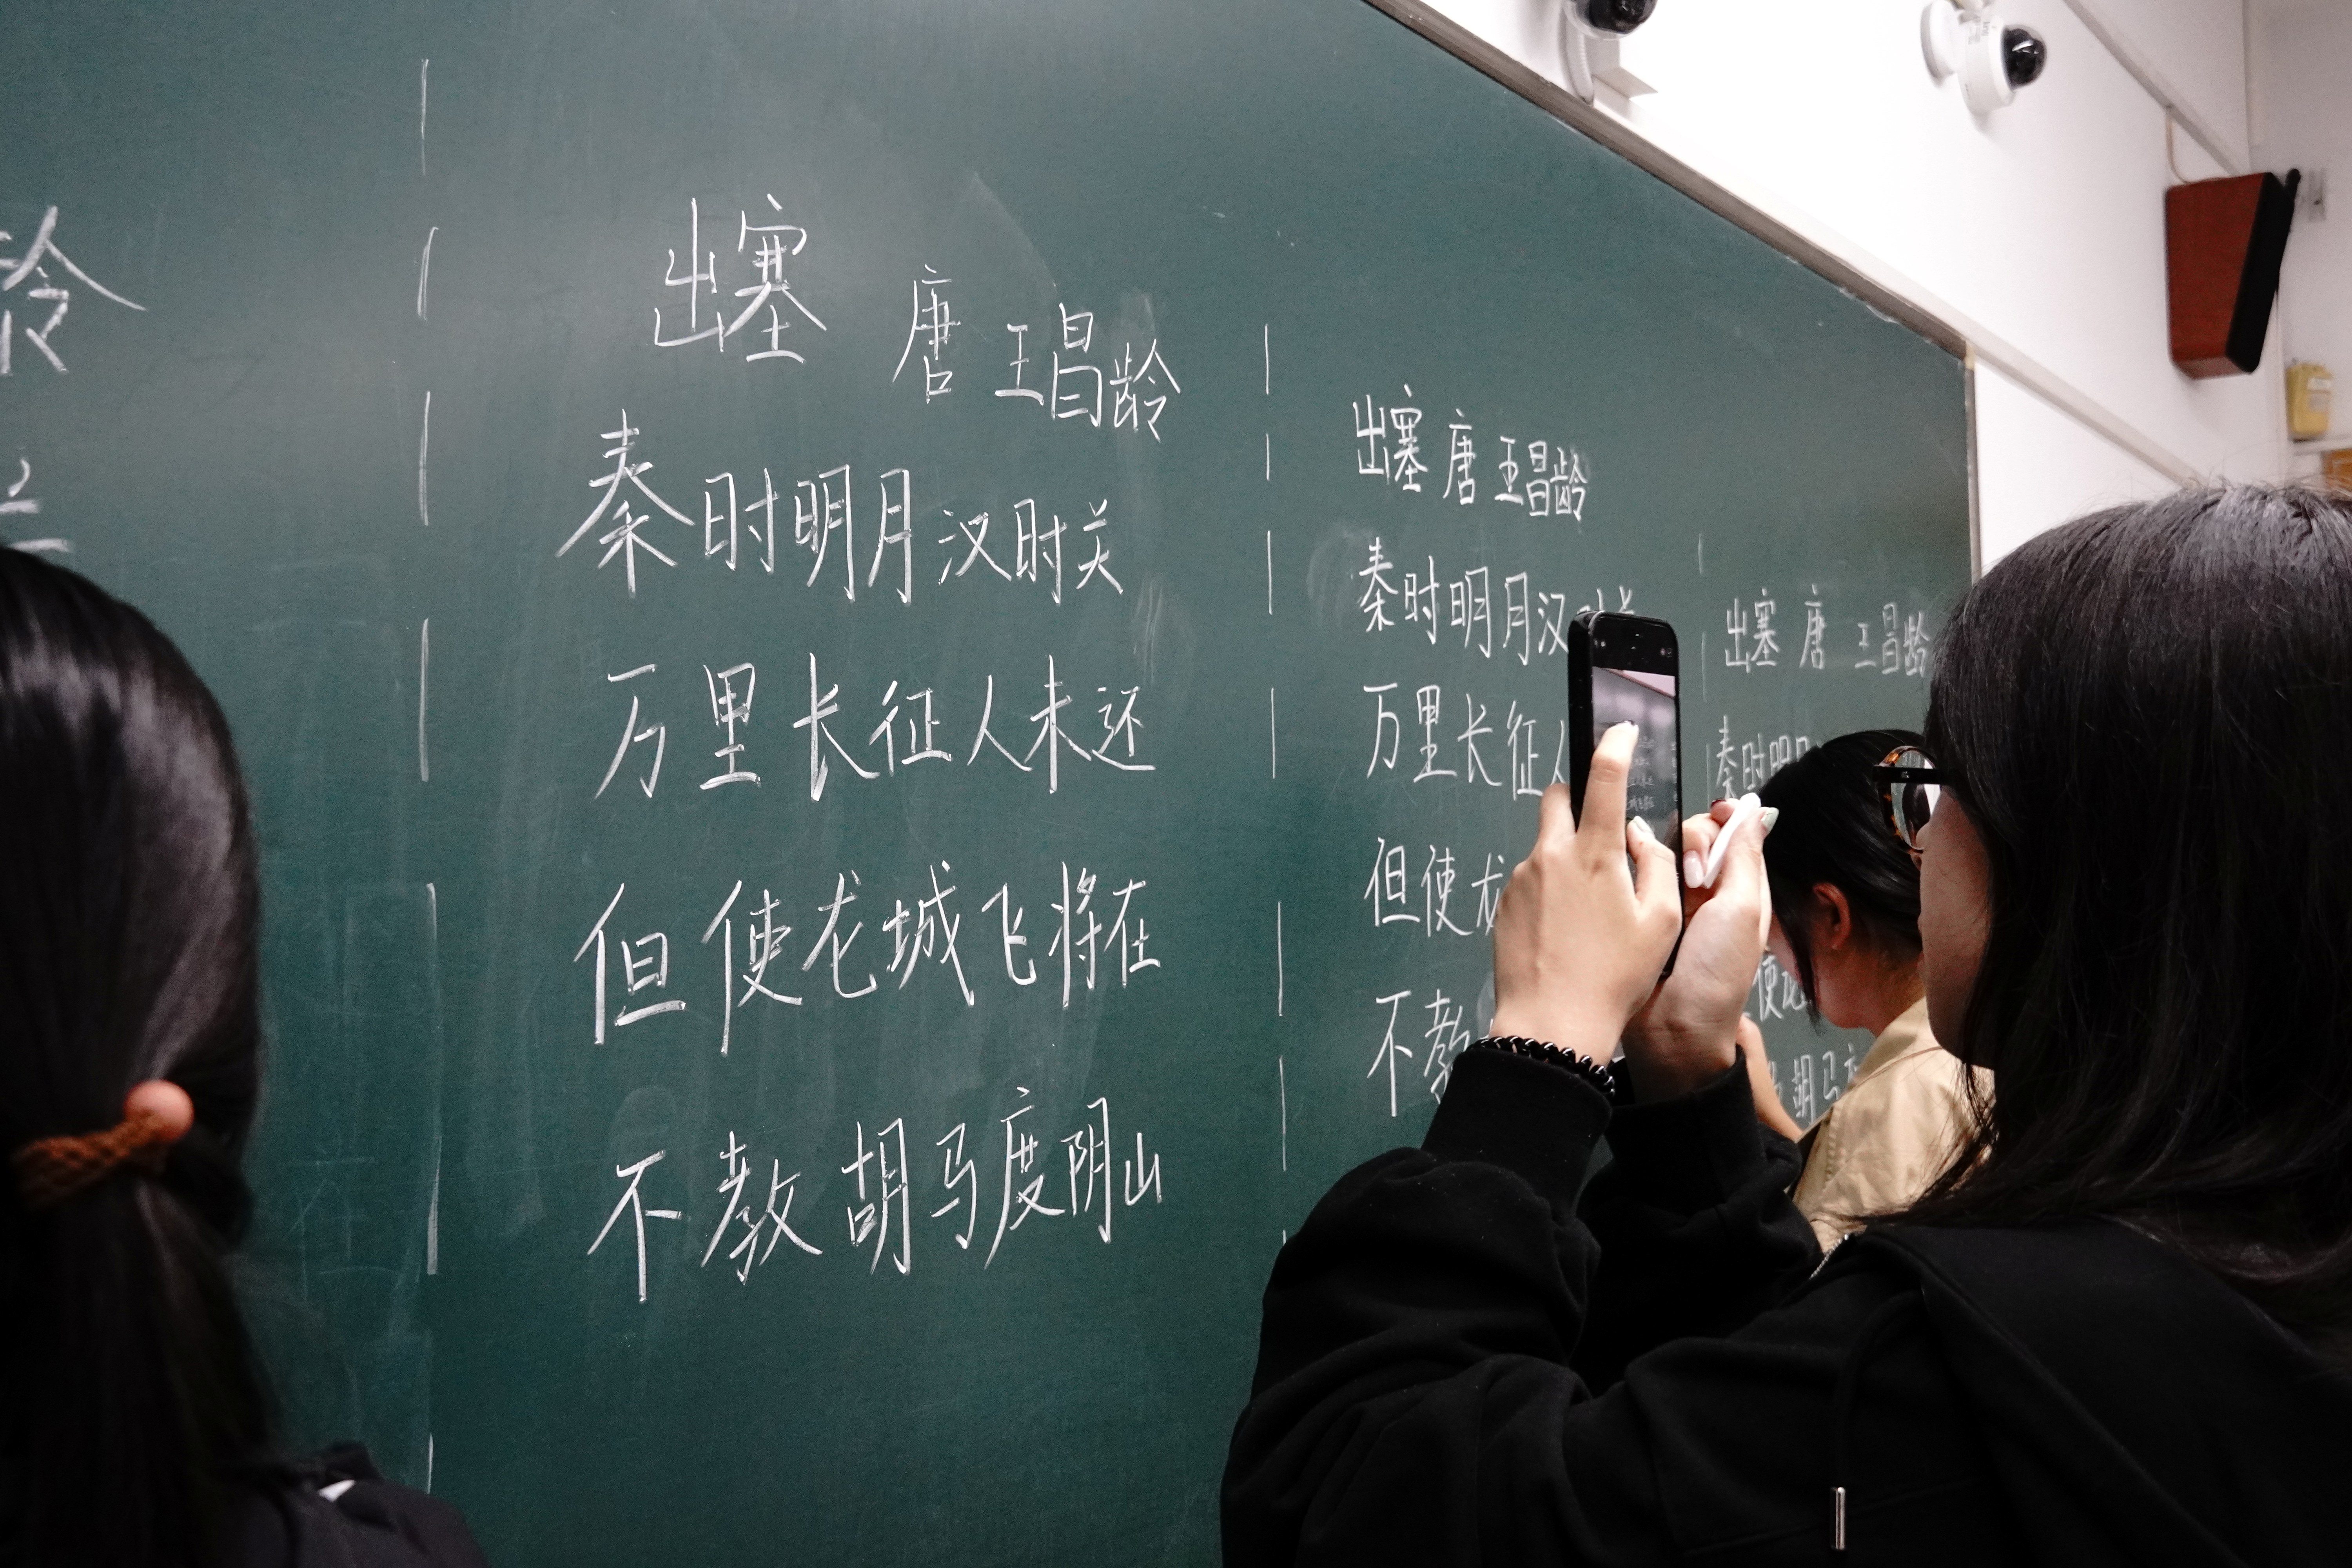 龄
出塞
唐 王昌龄
秦时明月汉时关
万里长征人未还
但使龙城飞将在
不教胡马度阴山
出塞 唐 王昌龄
秦时明月汉时关
万里长征人
但使龙
不教
出塞 唐 王昌龄
秦时明月
使龙
胡马度